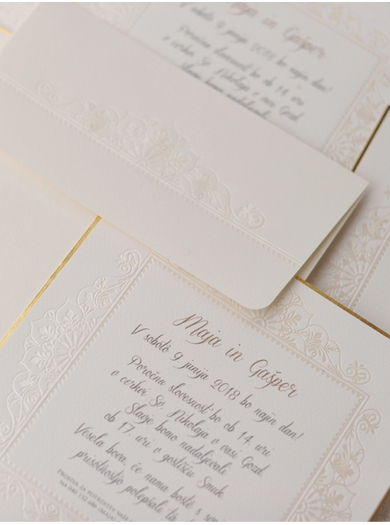 Maja in Gašper
V soboto 9. junija 2018 bo najin dan!
Poročna slovesnost bo ob 14. uri
v cerkvi Sv. Nikolaja v vasi Gozd.
Maja in Gašper
V soboto 9. junija 2018 bo najin dan!
Poročna slovesnost bo ob 14. uri
v cerkvi Sv. Nikolaja v vasi Gozd.
Slavje bomo nadaljevali
ob 17. uri v gostišču Smuk.
Vesela bova, če nama boste s
prisotnostjo polepšali ta